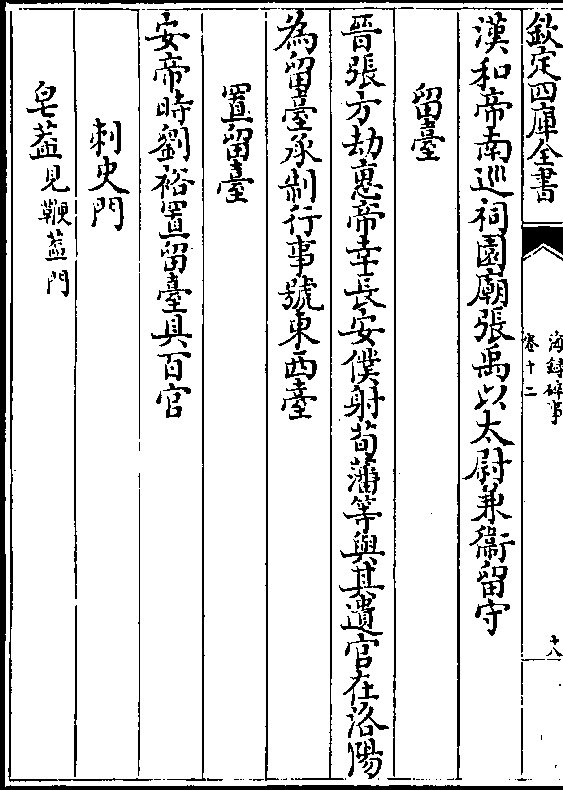 欽定四庫全書
海錄碎事
卷十二
十八
漢和帝南巡祠園廟張禹以太尉兼衛留守
留臺
晉張方劫惠帝幸長安僕射荀藩等與其遺官在洛陽
為留臺承制行事號東西臺
置留臺
安帝時劉裕置留臺具百官
刺史門
皂葢見鞭葢門